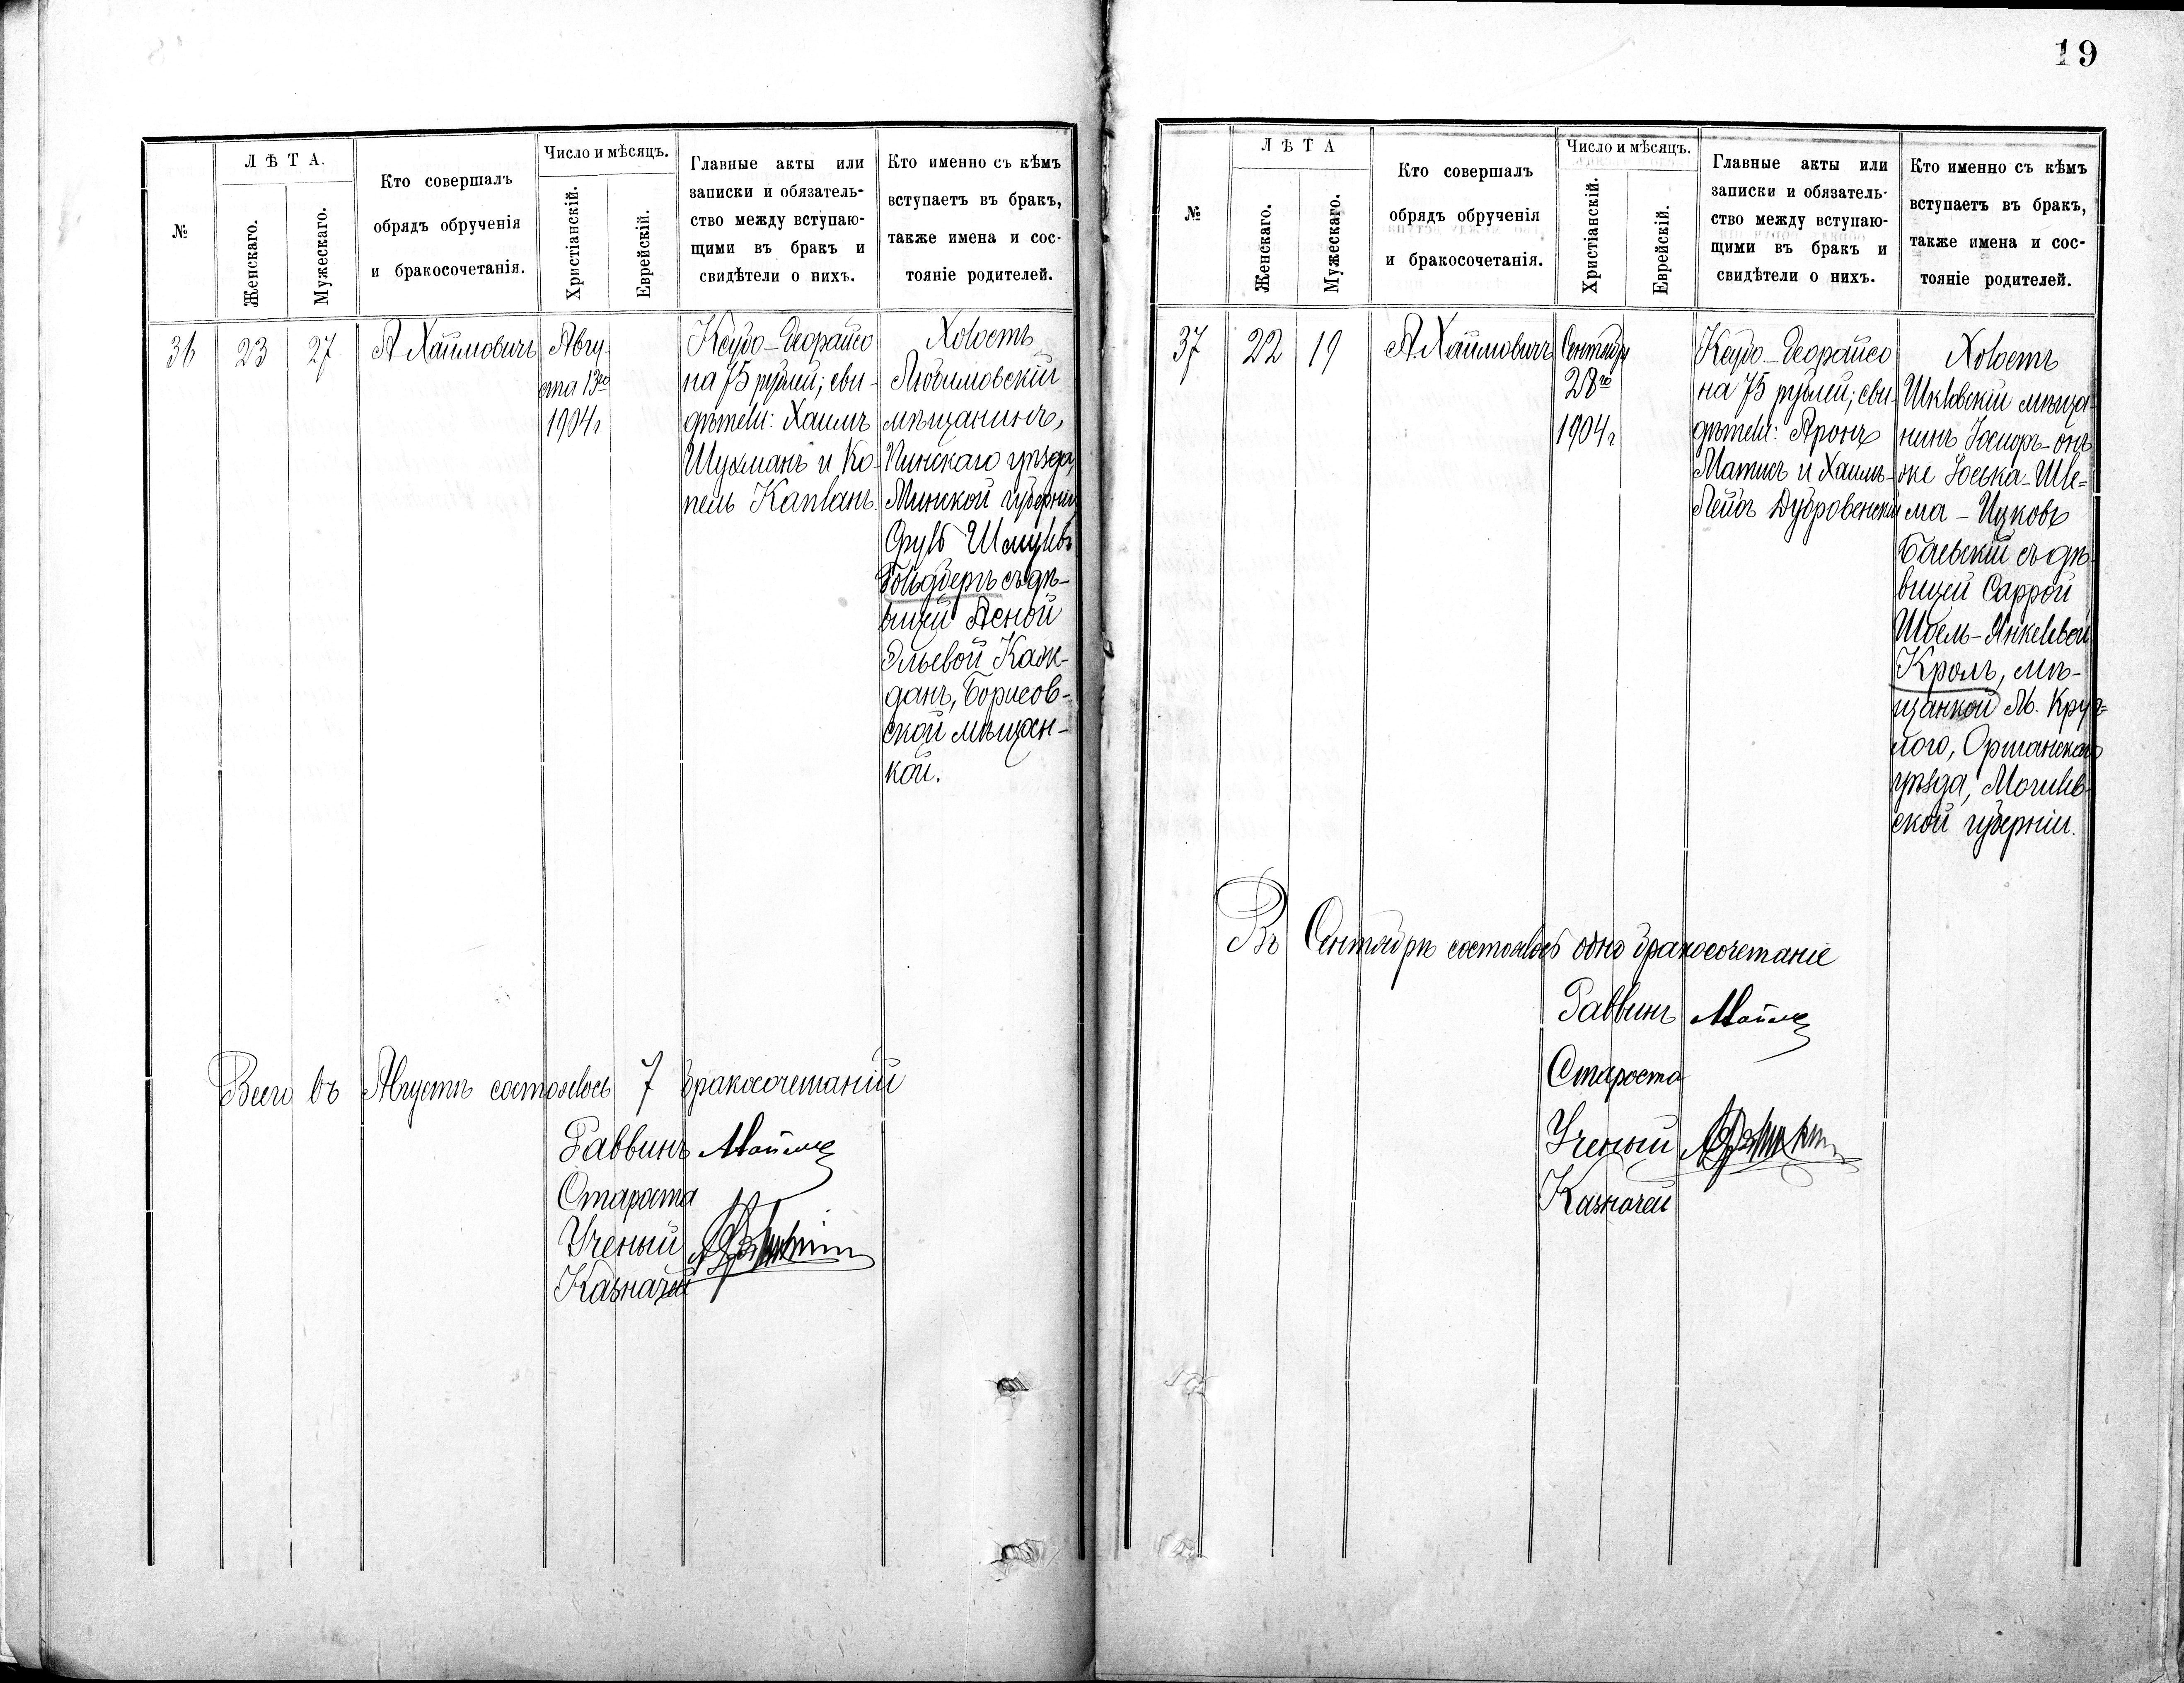 №
ЛѢТА.
Женскаго.
Мужескаго.
Кто совершалъ
обрядъ обрученія
и бракосочетанія.
Число и мѣсяцъ.
Христіанскій.
Еврейскій.
Главные акты или
записки и обязатель-
ство между вступаю-
щими въ бракъ и
свидѣтели о нихъ.
Кто именно съ кѣмъ
вступаетъ въ бракъ,
также имена и сос-
тояніе родителей.
36
23
27
А Хаимовичъ
Авгу-
ста 13го
1904 г
Ксубо-Деорайсо
на 75 рублей; сви-
дѣтели: Хаимъ
Шухманъ и Ко-
пель Капланъ.
Холостъ
Любимовскій
мѣщанинъ,
Пинскаго уѣзда,
Минской губерніи
Сруль Шмулевъ
Гольдбергъ съ дѣ-
вицей Асной
Эльевой Каж-
данъ, Борисов-
ской мѣщан-
кой.
Всего въ Августѣ состоялось 7 бракосочетаній
Раввинъ
Староста
Ученый
Казначей
19
№
ЛѢТА
Женскаго.
Мужескаго.
Кто совершалъ
обрядъ обрученія
и бракосочетанія.
Число и мѣсяцъ.
Христіанскій.
Еврейскій.
Главные акты или
записки и обязатель-
ство между вступаю-
щими въ бракъ и
свидѣтели о нихъ.
Кто именно съ кѣмъ
вступаетъ въ бракъ,
также имена и сос-
тояніе родителей.
37
22
19
А. Хаимовичъ
Сентябр
28го
1904 г
Ксубо-Деорайсо
на 75 рублей; сви-
дѣтели: Аронъ
Матисъ и Хаимъ-
Лейбъ Дубровенскій
Холостъ
Шкловскій мѣща-
нинъ Іосифъ-онъ
же Іоська-Шле-
ма-Ицковъ
Баевскій съ дѣ-
вицей Саррой
Шоель-Янкелевой
Кроль, мѣ-
щанкой М. Круг-
лого, Оршанскаго
уѣзда, Могилев-
ской губерніи.
Въ Сентябрѣ состоялось одно бракосочетаніе
Раввинъ
Староста
Ученый
Казначей